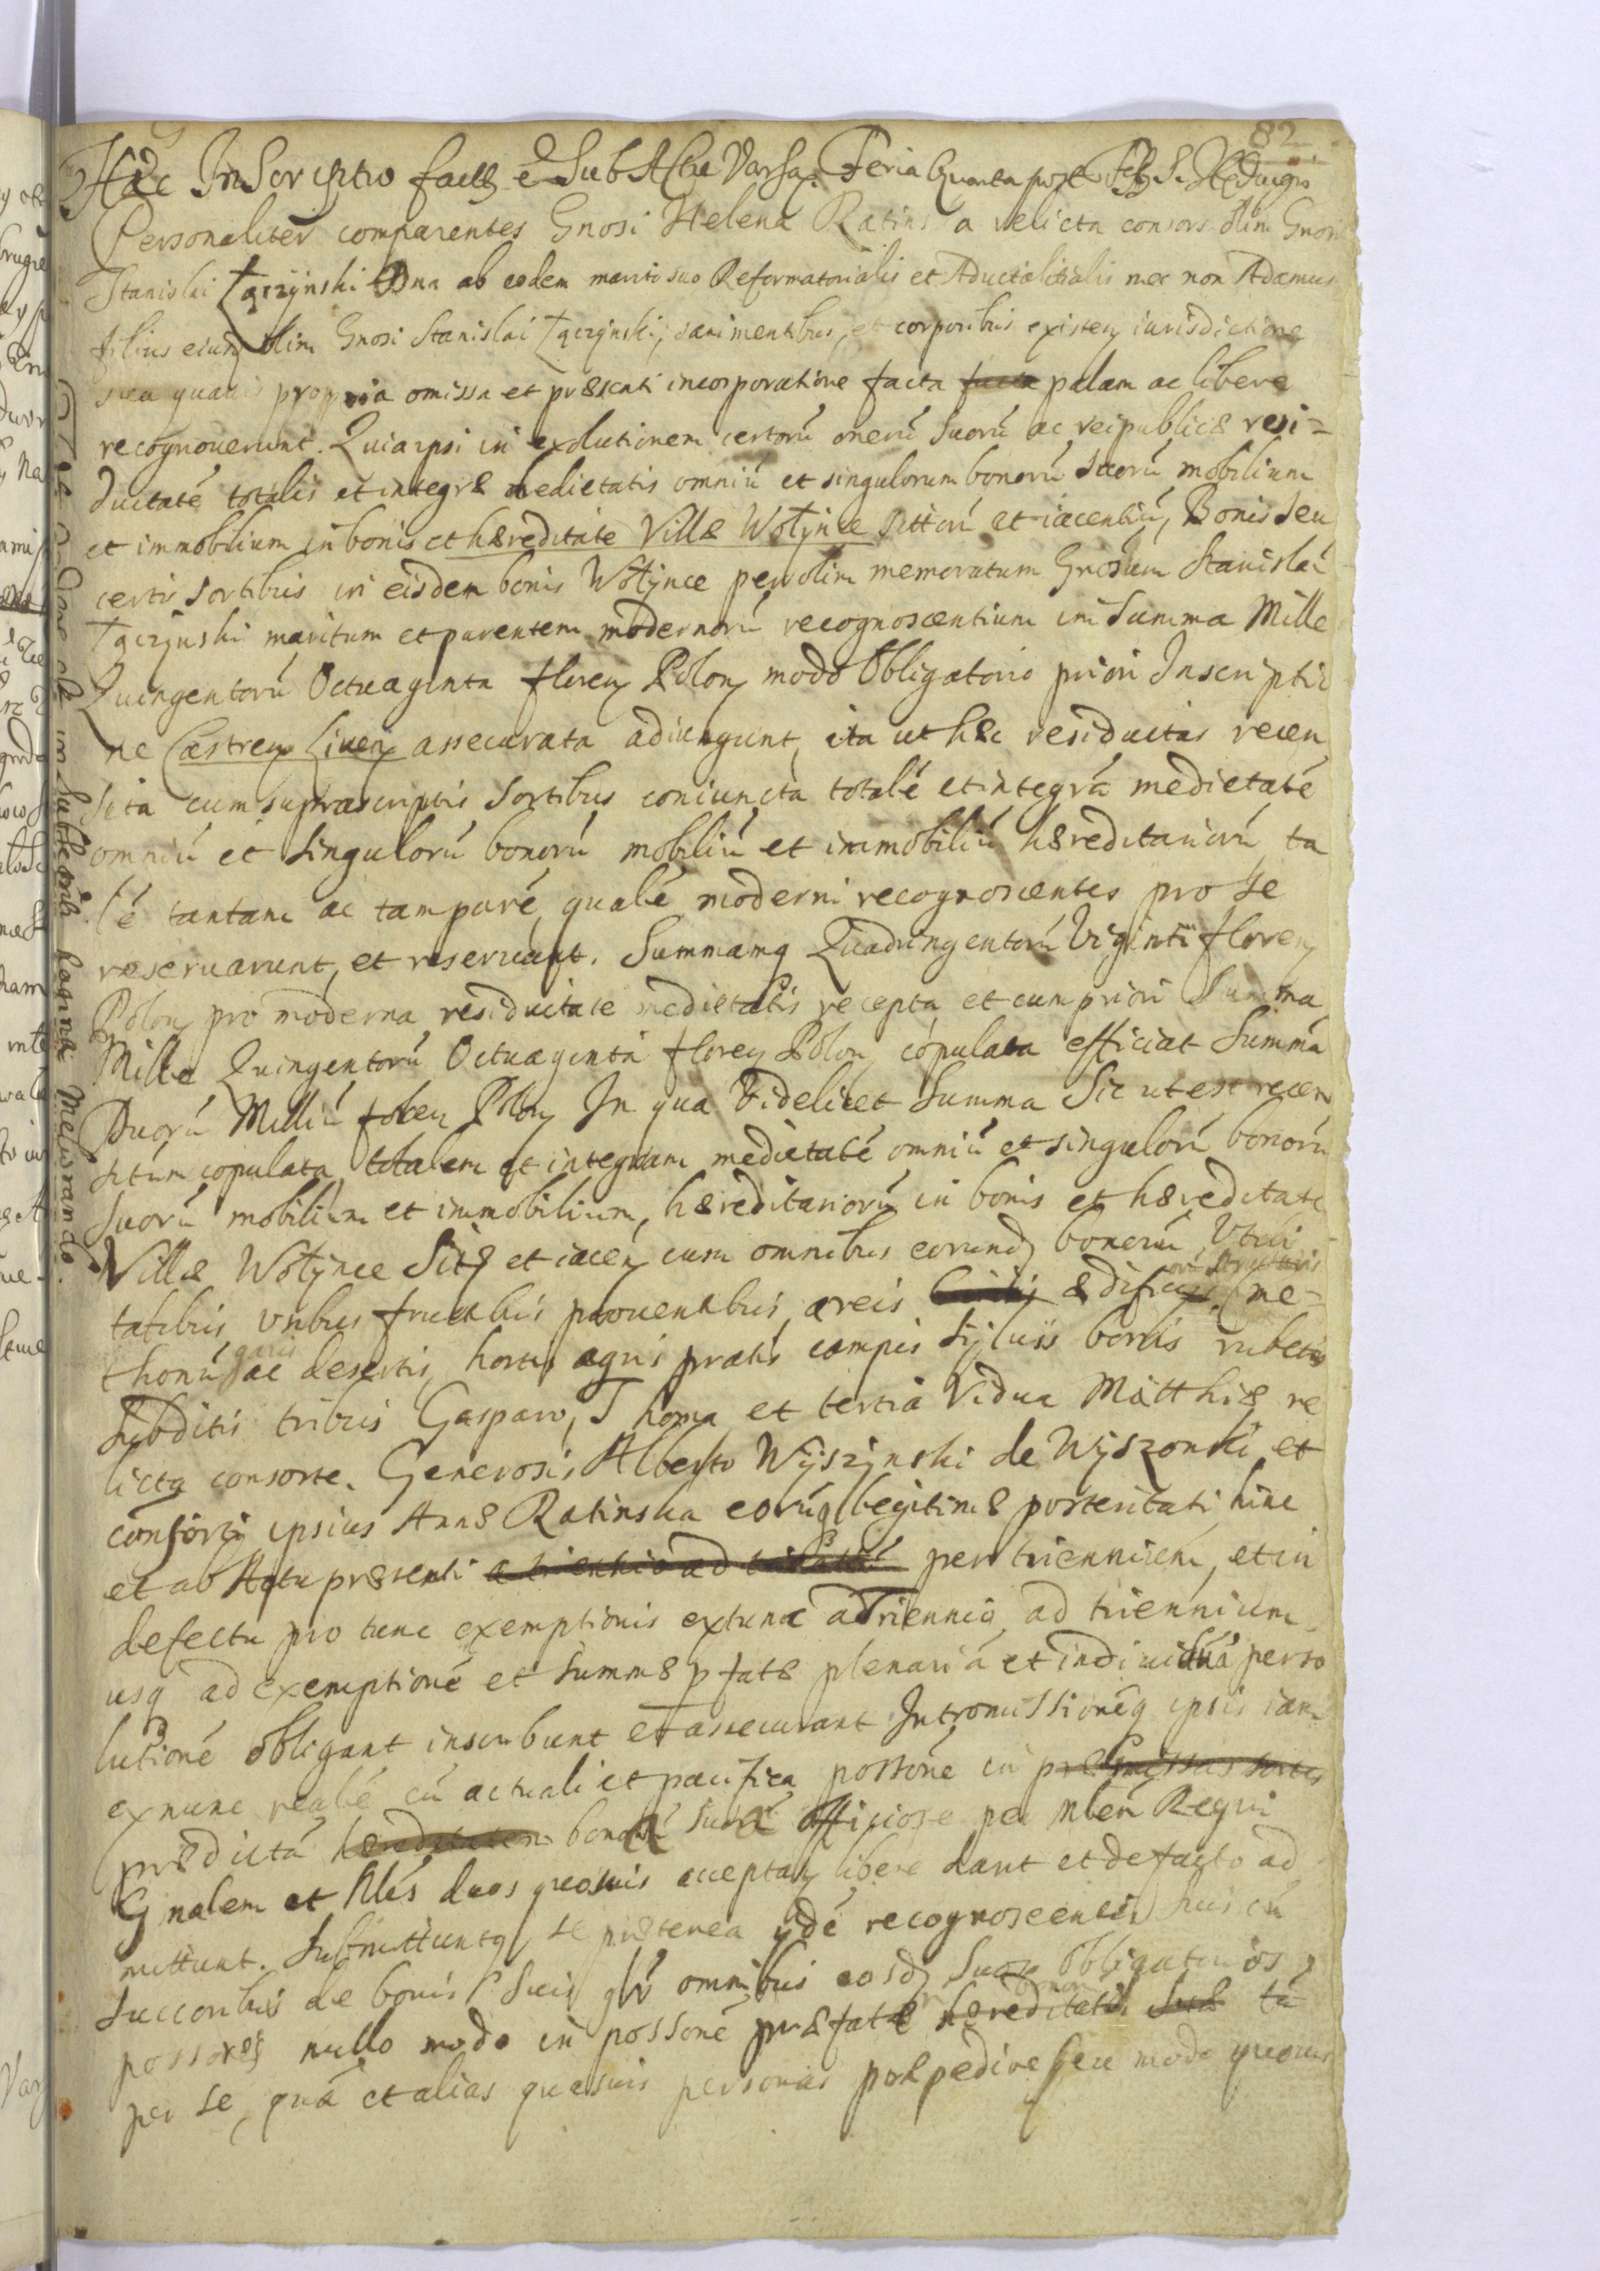 82
Hæc Inscriptio facta e Sub Actu Varsa. Feria Quarta post F. S. Heduigis
Personaliter comparentes Gnosi Helena Ratins a relicta consors olim Gnosi
Stanislai Łączynski Dna ab eodem marito suo Reformatorialis et Aductalitialis nec non Adamus
filius eiusdem olim Gnosi Stanislai Łączynski, sani mentibus, et corporibus existen iurisdictione
sua quavis propria omissa et præsenti incorporatione facta facta palam ac libere
recognoverunt. Quia ipsi in exolutionem certorũ onerũ suorũ ac reipublicæ resi=
duitatẽ totalis et integræ medietatis omniũ et singulorum bonorũ suorũ mobilium
et immobilium in bonis et hæreditate Villæ Wołynce sittorũ et iacentiũ, Bonis seu
certis sortibus in eisdem bonis Wołynce per olim memoratum Gnosum Stanislaũ
Łączynski maritum et parentem modernorũ recognoscentium in Summa Mille
Quingentorũ Octuaginta floren Polon modo Obligatorio priori Inscriptio
ne Castren Liuen assecurata adiungunt, ita ut hæc residuitas recen
sita cum suprascriptis sortibus coniuncta totalẽ et integrã medietatẽ
omniũ et singulorũ bonorũ mobiliũ et immobiliũ hæreditariorũ ta
lẽ tantam ac tamparẽ, qualẽ moderni recognoscentes pro se
reservarunt, et reservant. Summamq Quadringentorũ Viginti floren
Polon pro moderna residuitate medietatis recepta et cum priori Summa
Mille Quingentorũ Octuaginta floren Polon copulata efficiat Summã
Duorũ Milliũ floren Polon In qua Videlicet Summa Sic ut est recen
situm copulata totalem et integram medietatẽ omniũ et singulorũ bonorũ
suorũ mobilium et immobilium, hæreditariorũ in bonis et hæreditate
Villæ Wołynce Sitæ et iacen cum omnibus eorund bonorũ Utili
tatibus usibus fructibus proventibus, areis ædificijs me-
thonũ ac desertis, hortis agris pratis campis syluis borris rubetis
Subditis tribus Gasparo, Thoma et tertia Vidua Matthiæ re
licta consorte. Generosis Alberto Wyszynski de Wyszonki, et
consorti ipsius Annæ Ratinska eorũq legitimæ posteritati, hinc
et ab Actu præsenti a triennio ad per triennium, et in
defectu pro tunc exemptionis extunc a Triennio ad triennium
usq ad exemptionẽ et Summæ pfatæ plenariã et individuã perso
lutionẽ obligant inscribunt et assecurant Intromissionẽq ipsis iam
exnunc realẽ cũ actuali et pacifica possonẽ in præmissas sortes
prædictã hæreditatem bonorũ suorũ officiose per Mlem Regni
Gnalem et Nles duos quosuis acceptan libere dant et de facto ad
mittunt. Submittuntq se præterea ijdẽ recognoscentes suis cũ
succoribus de bonis suis glr omnibus eosd suos obligatorios
possores nullo modo in possonẽ præfatæ hæreditatis suæ tã
per se, quã et alias quasuis personas præpedire seu modo quouis